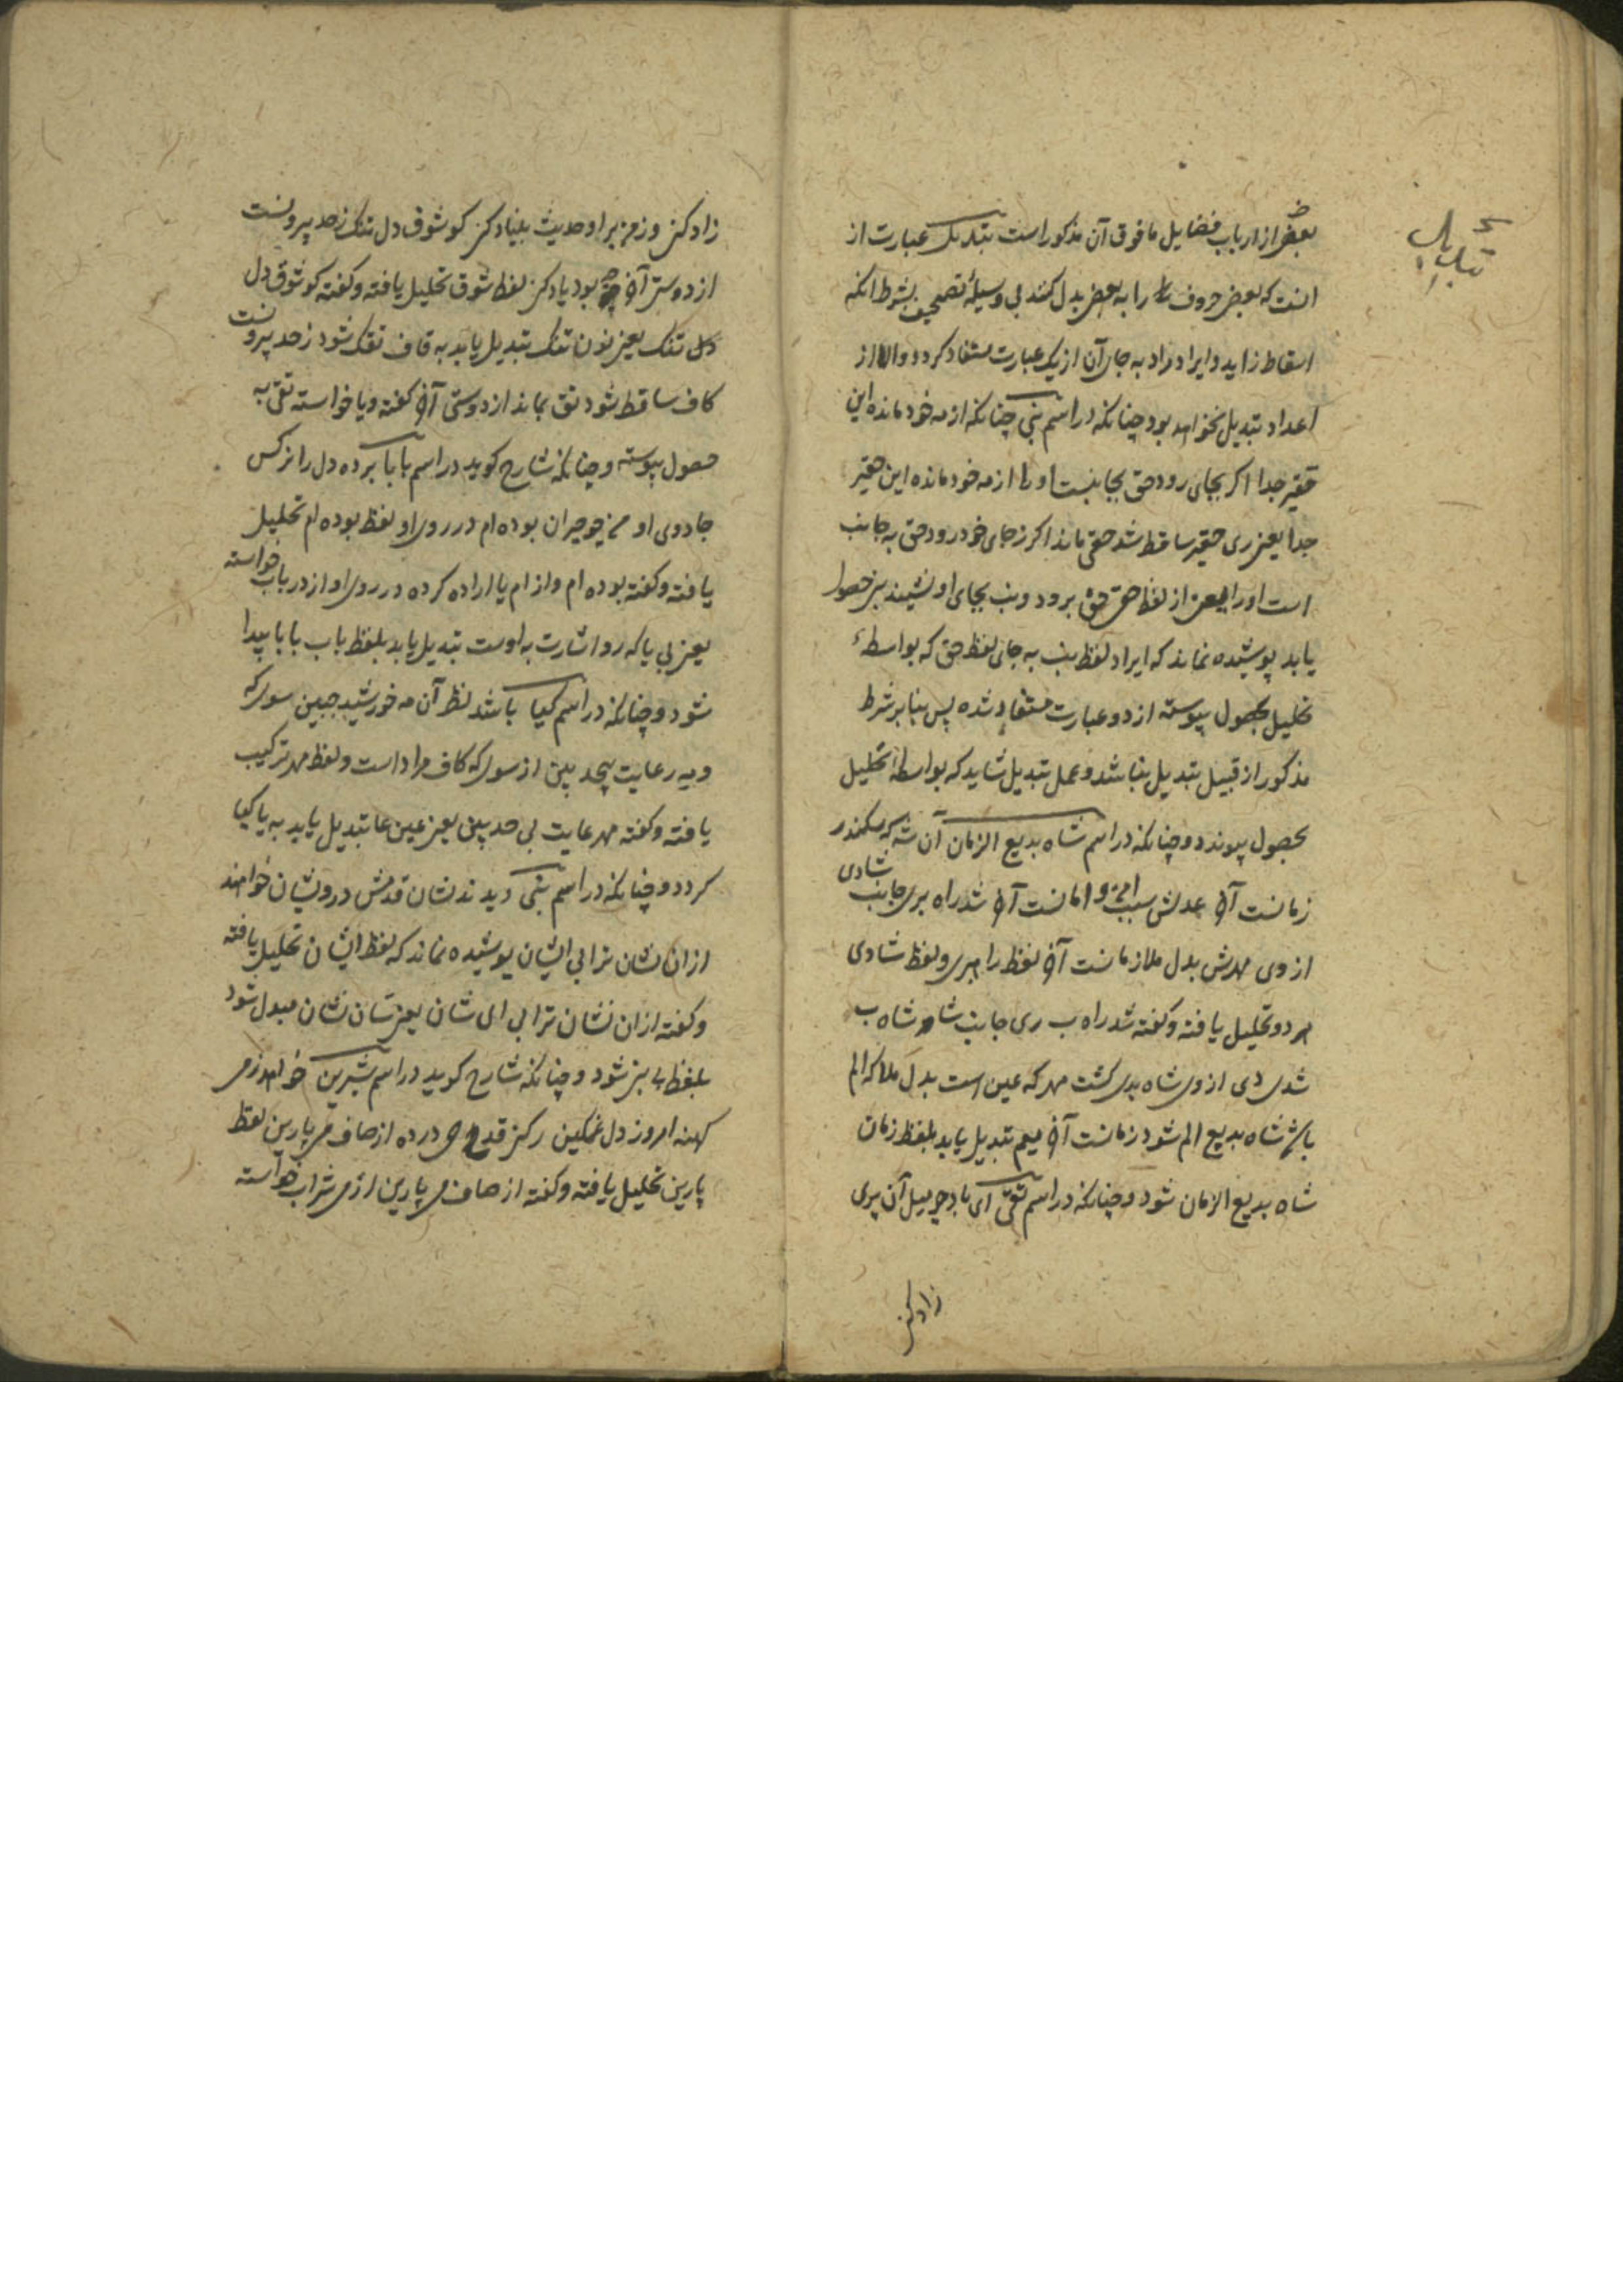 تبدیل
بعضی از ارباب فضایل مافوق آن مذکور است تبدیل عبارت از
انست که بعض حروف را به بعض بدل کنند بی وسیلهٔ تصحیف بشرط انکه
اسقاط زاید و ایراد مراد به جای آن از یک عبارت مستفاد کردد والا از
اعداد تبدیل نخواهد بود چنانکه در اسم بنی چنانکه از مه خود مانده این
حقیر جدا اکر بجای رود حق بجانبست او را از مه خود مانده این حقیر
جدا یعنی ری حقیر ساقط شد حقی ماند اکر ز جای خود رود حق به جانب
است او را یعنی از لفظ حقی حق برود و بنب بجای او نشیند بنی حصول
یابد پوشیده نماند که ایراد لفظ بنب به جای لفظ حق که بواسطهٔ
تحلیل بحصول پیوسته از دو عبارت مستفاد شده پس بنابر شرط
مذکور از قبیل تبدیل نباشد و عمل تبدیل شاید که بواسطهٔ تحلیل
بحصول پیوندد و چنانکه در اسم شاه بدیع الزمان آن شه که سکندر
زمانست آن عدلش سبب امن و امانست آن شد راه بری جانب شادی
از وی مهرش بدل ملازمانست آن لفظ راهبری و لفظ شادی
هر دو تحلیل یافته و کفته شد راه ب ری جانب شاه شاه ب
شدی دی از وی شاه بدی کشت مهر که عین است بدل ملا که الم
باشد شاه بدیع الم شود زمانست آن میم تبدیل یابد بلفظ زمان
شاه بدیع الزمان شود و چنانکه در اسم تقی ای باد چو میل آن پری
زاد کنی
زاد کنی وز من بر او حدیث بنیاد کنی کو شوق دل تنک ز حد بیرونست
از دوستی آن بود یاد کنی لفظ شوق تحلیل یافته و کفته کو شوق دل
دل تنک یعنی نون تنک تبدیل یابد به قاف تقک شود ز حد بیرونست
کاف ساقط شود تق بماند از دوستی آن کفته و یا خواسته تقی به
حصول پیوسته و چنانکه شارح کوید در اسم بابا برده دل را نرکس
جادوی او من چو حیران بوده ام در روی او لفظ بوده ام تحلیل
یافته و کفته بوده ام و از ام یا اراده کرده در روی او از در باب خواسته
یعنی بی یا که رو اشارت به اوست تبدیل یابد بلفظ باب بابا پیدا
شود و چنانکه در اسم کیا باشد نظر آن مه خورشید جبین سوی که
و مه رعایت بیحد بین از سوی که کاف مراد است و لفظ مهر ترکیب
یافته و کفته مهر عایت بی حد بین یعنی عین عا تبدیل یابد به یا کیا
کردد و چنانکه در اسم بنی دیدند نشان قدمش درویشان خواهند
ازان نشان ترا بی ایشان پوشیده نماند که لفظ ایشان تحلیل یافته
و کفته ازان نشان ترا بی ای شان یعنی شان نشان مبدل شود
بلفظ بی بنی شود و چنانکه شارح کوید در اسم شیرین خواهد ز می
کهنه امروز دل غمکین رکن قدح می در ده از صاف می پارین لفظ
پارین تحلیل یافته و کفته از صاف می پارین از می شراب خواسته